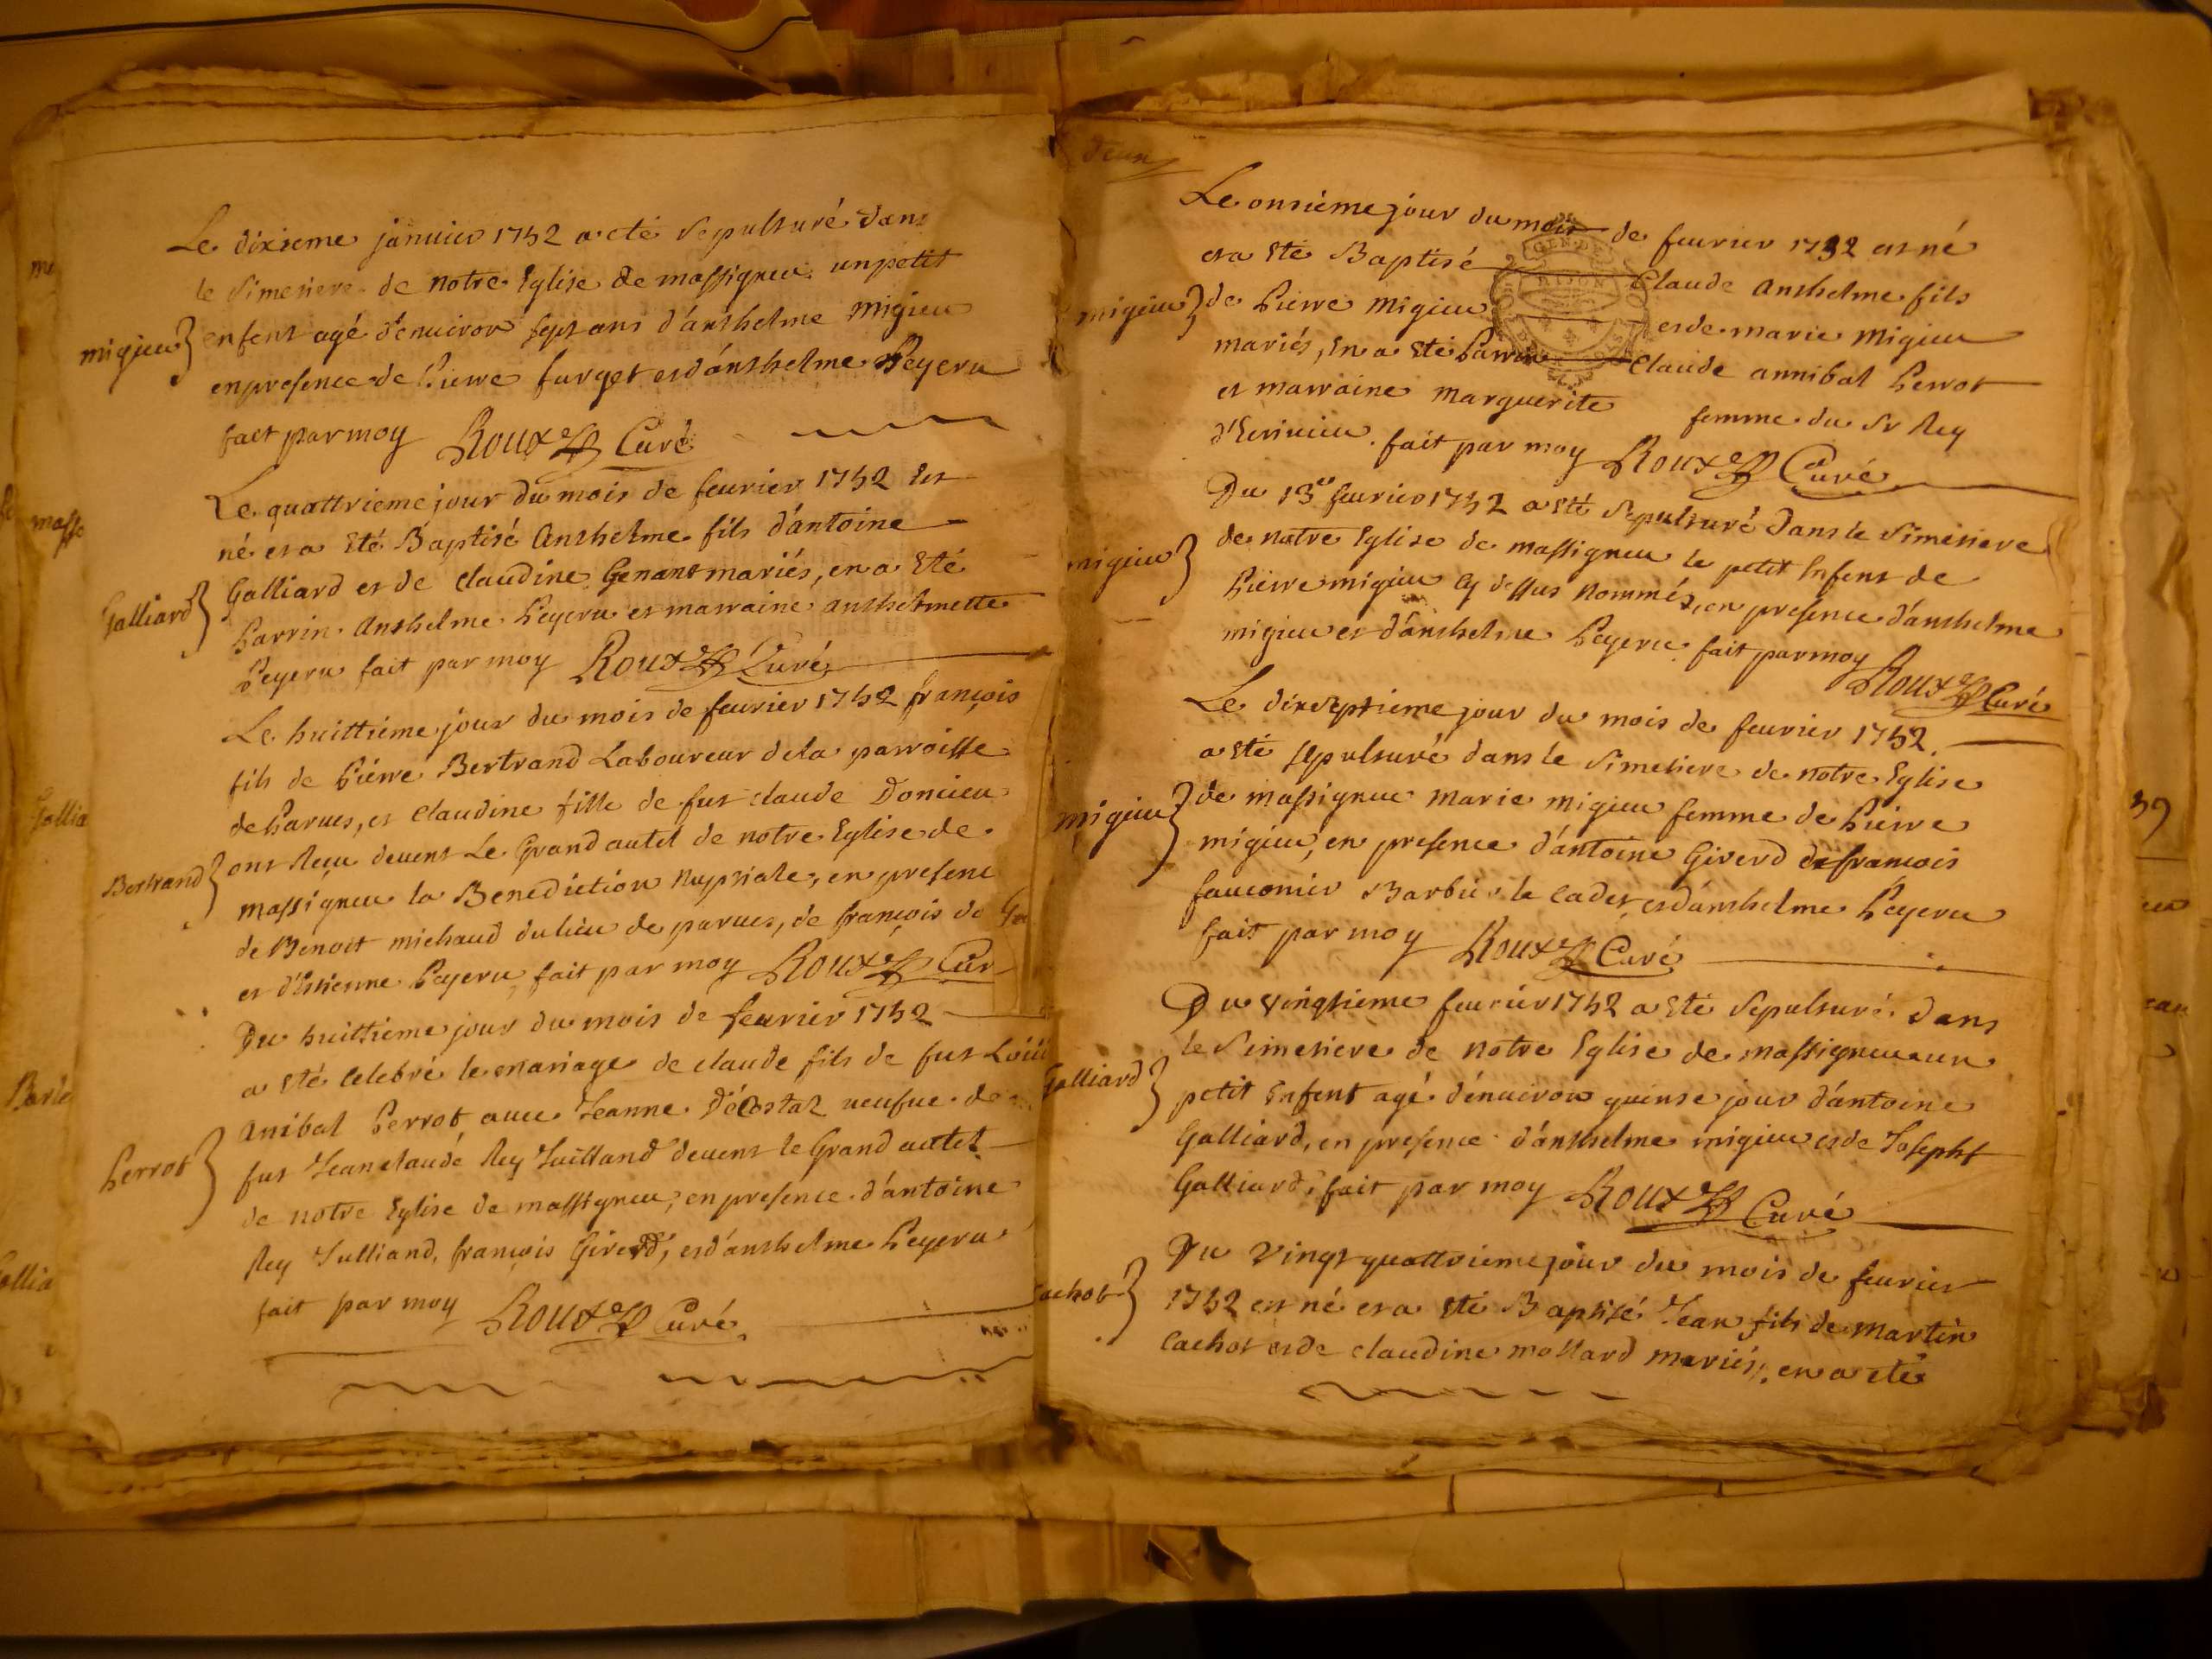 Le dixieme janvier 1752 a eté sepulturé dans
le Simetiere de notre Eglise de massigneu un petit
migieu } enfent agé d'enuiron sept ans d'anthelme migieu
en presence de Pierre furget et d'anthelme Peyeru
fait par moy Roux Curé
Le quattrieme jour du mois de feurier 1752 Est
né et a Eté Baptisé Anthelme fils d'antoine
Galliard } Galliard et de claudine Genant mariés, en a Eté
Parrin Anthelme Peyeru et marraine anthelmette
Peyeru fait par moy Roux Curé
Le huittieme jour du mois de feurier 1752 françois
fils de Pierre Bertrand Laboureur de la parroisse
de Parues, et Claudine fille de fut claude Domieu
Bertrand } ont Reçu deuent Le Grand autel de notre Eglise de
massigneu la Benediction Nuptiale, en presenc
de Benoit michaud du lieu de parues, de françois
et d'Estienne Peyeru, fait par moy Roux Cur
Du huittieme jour du mois de feurier 1752
a eté Celebré le mariage de claude fils de fut
Perrot } Anibal Perrot auec Jeanne veufue de
fut Jean claude Rey Juilland deuent le Grand autel
de notre Eglise de massigneu, en presence d'antoine
Rey Julliand, françois Gird, et d'anthelme Peyeru
fait par moy Roux Curé
Le onsieme jour du mois de feurier 1752 est né
et a Eté Baptisé Claude Anthelme fils
migieu } de Pierre Migieu et de marie Migieu
mariés, En a Eté Parrin Claude annibal Perrot
et marraine Marguerite femme du Sr Rey
fait par moy Roux Curé
Du 13e feurier 1752 a Eté Sepulturé Dans le Simetiere
migieu } de notre Eglise de massigneu le petit Enfent de
Pierre migieu Cy dessus Nommés, en presence d'anthelme
migieu et d'anthelme Peyeru fait par moy
Roux Curé
Le dixseptieme jour du mois de feurier 1752
a Eté sepulturé dans le Simetiere de notre Eglise
migieu } de massigneu Marie Migieu femme de Pierre
migieu, en presence d'antoine Girerd de francois
fauconnier Barbier le Cadet et d'anthelme Peyeru
fait par moy Roux Curé
Du Vingtieme feurier 1752 a Eté Sepulturé Dans
le Simetiere de Notre Eglise de massigneu un
Galliard } petit Enfent agé d'enuiron quinse jour d'antoine
Galliard, en presence d'anthelme migieu et de Josepht
Galliard, fait par moy Roux Curé
Du Vingt quattrieme jour du mois de feurier
Cachot } 1752 est né et a Eté Baptisé Jean fils de Martin
Cachot et de claudine mollard mariés, en a eté
39